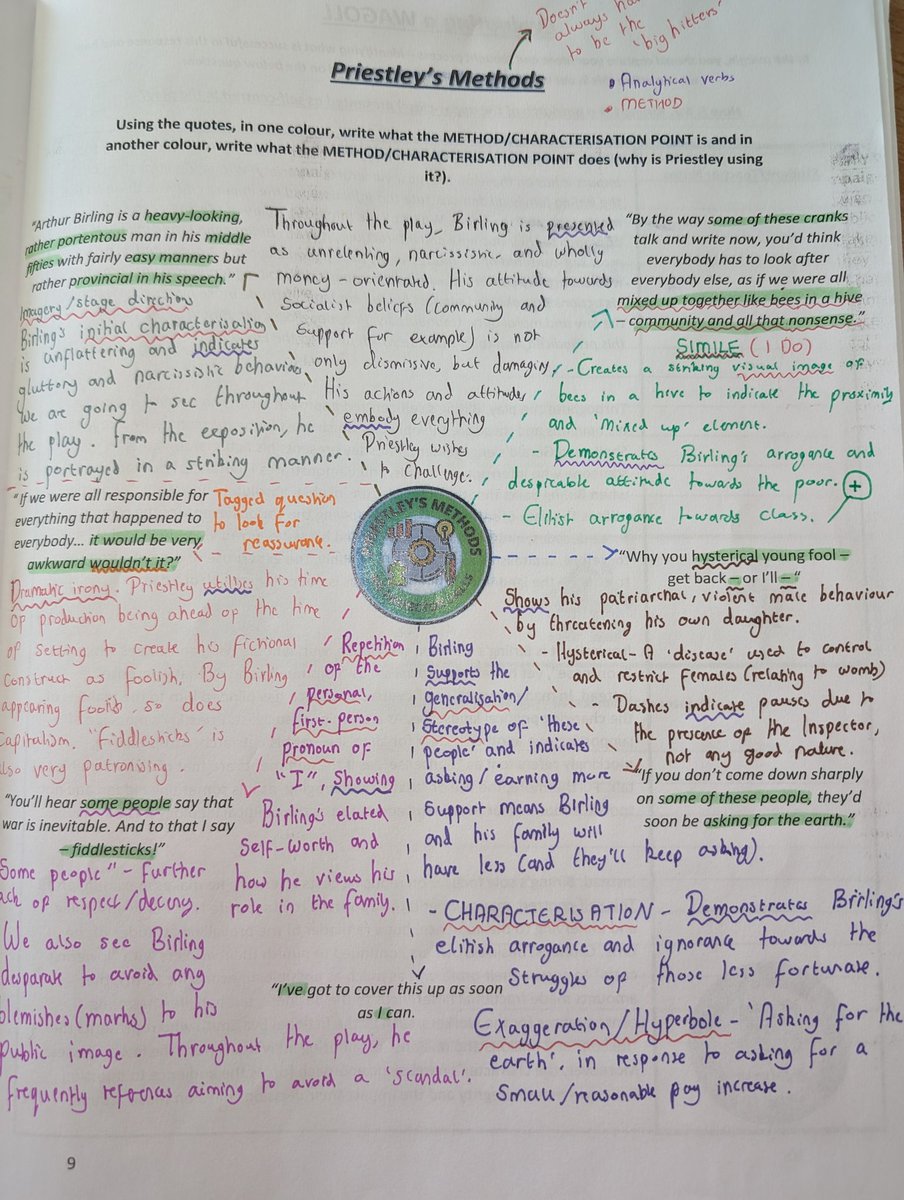 Doesn't
always ha
to be the
'big hitters'
Priestley's Methods
• Analytical verbs
• METHOD
Using the quotes, in one colour, write what the METHOD/CHARACTERISATION POINT is and in
another colour, write what the METHOD/CHARACTERISATION POINT does (why is Priestley using
it?).
"Arthur Birling is a heavy-looking,
rather portentous man in his middle
fifties with fairly easy manners but
rather provincial in his speech."
Imagery/stage direction
Birling's initial characterisation
is unflattering and indicates
gluttony and narcissistic behaviour
we are going to see throughout
the play. From the exposition, he
is portrayed in a striking manner.
Throughout the play, Birling is presented
as unrelenting, narcissistic and wholly
money-orientated. His attitude towards
Socialist beliefs (community and
support for example) is not
only dismissive, but damaging.
His actions and attitudes
embody everything
Priestley wishes
to challenge.
"By the way some of these cranks
talk and write now, you'd think
everybody has to look after
everybody else, as if we were all
mixed up together like bees in a hive
– community and all that nonsense."
SIMILE (I DO)
- Creates a striking visual image of
bees in a hive to indicate the proximity
and 'mixed up' element.
- Demonstrates Birling's arrogance and
despicable attitude towards the poor. +
- Elitist arrogance towards class.
"If we were all responsible for
everything that happened to
everybody... it would be very
awkward wouldn't it?"
Tagged question
to look for
reassurance.
PRIESTLEY'S METHODS
Dramatic irony. Priestley utilises his time
of production being ahead of the time
of setting to create his fictional
construct as foolish. By Birling
appearing foolish, so does
Capitalism. "Fiddlesticks" is
also very patronising.
"Why you hysterical young fool –
get back – or I'll – "
Shows his patriarchal, violent male behaviour
by threatening his own daughter.
- Hysterical - A 'disease' used to control
and restrict females (relating to womb)
- Dashes indicate pauses due to
the presence of the Inspector,
not any good nature.
Repetition
of the
personal,
first-person
pronoun of
"I", showing
Birling's elated
self-worth and
how he views his
role in the family.
Birling
supports the
generalisation/
Stereotype of 'these
people' and indicates
asking/earning more
support means Birling
and his family will
have less (and they'll keep asking).
"You'll hear some people say that
war is inevitable. And to that I say
– fiddlesticks!"
Some people" - further
ack of respect/decency.
We also see Birling
desparate to avoid any
blemishes (marks) to his
public image. Throughout the play, he
frequently references aiming to avoid a 'scandal'.
"I've got to cover this up as soon
as I can.
"If you don't come down sharply
on some of these people, they'd
soon be asking for the earth."
- CHARACTERISATION - Demonstrates Birling's
elitish arrogance and ignorance towards the
struggles of those less fortunate.
Exaggeration/Hyperbole - 'Asking for the
earth', in response to asking for a
small/reasonable pay increase.
9